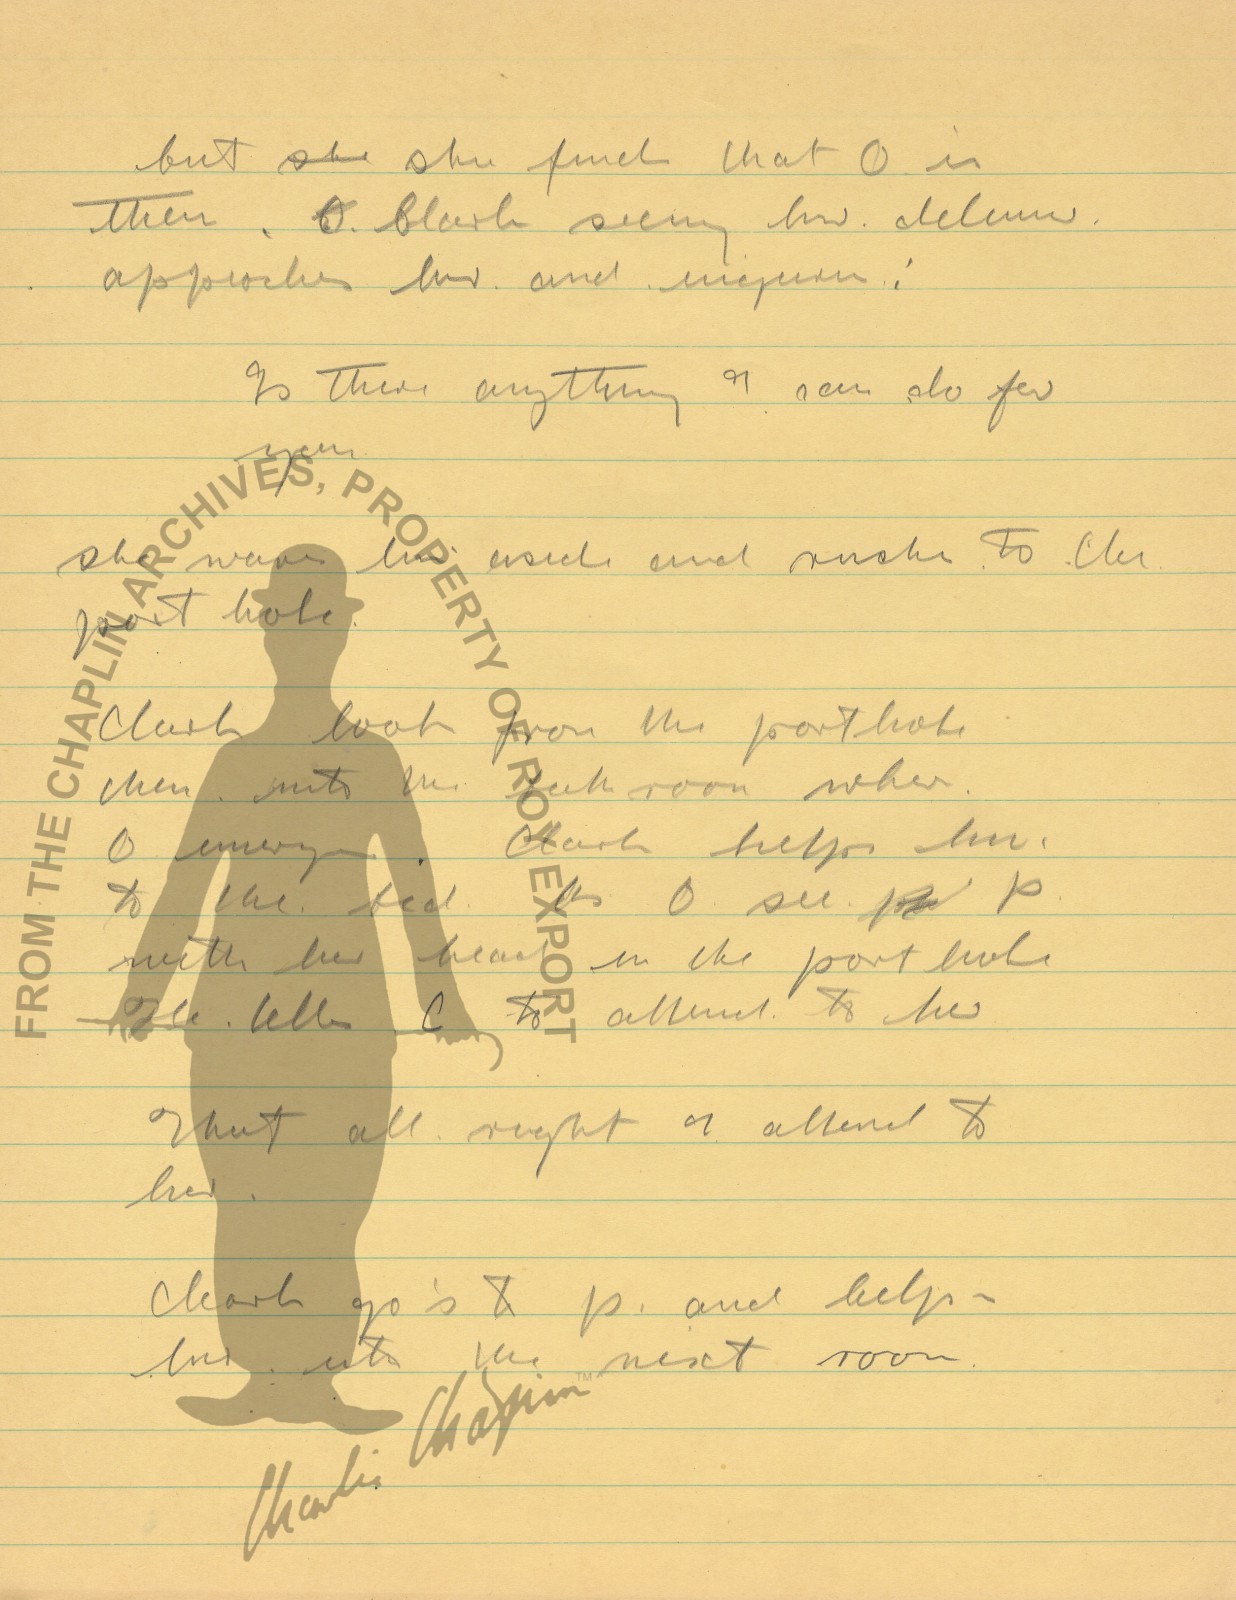 but she she finds that O is
then. O. Clark seeing her. delemer.
approches her. and. inquires:
Is there anything I can do for
you
she waves him aside and rushes to the
port hole.
Clark looks from the porthole
then. into the bath room where.
O emerges. Clark helps him.
to the. bed. As O. see. P.
with her head in the port hole
He. tells C to attend. to her
That all. right I. attend to
her.
Clark go's to p. and helps
her. into the next room.
FROM THE CHAPLIN ARCHIVES, PROPERTY OF ROY EXPORT
Charlie Chaplin™